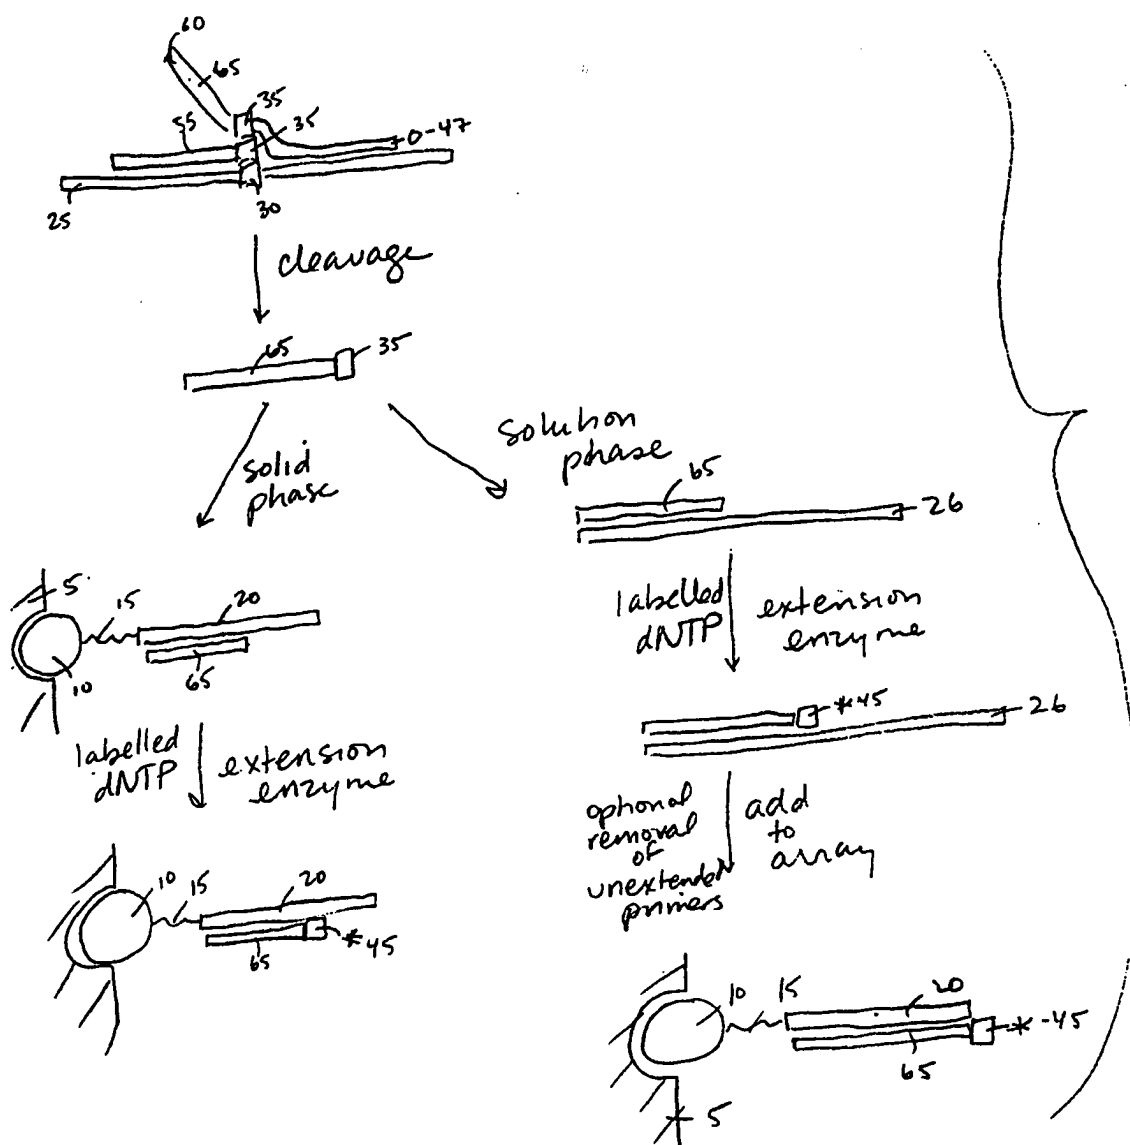 60
65
35
55
35
0-47
25
30
cleavage
65
35
solid
phase
solution
phase
65
26
5
15
20
10
65
labelled
dNTP
extension
enzyme
labelled
dNTP
extension
enzyme
*45
26
10
15
20
65
*45
optional
removal
of
unextended
primers
add
to
array
10
15
20
*-45
65
5